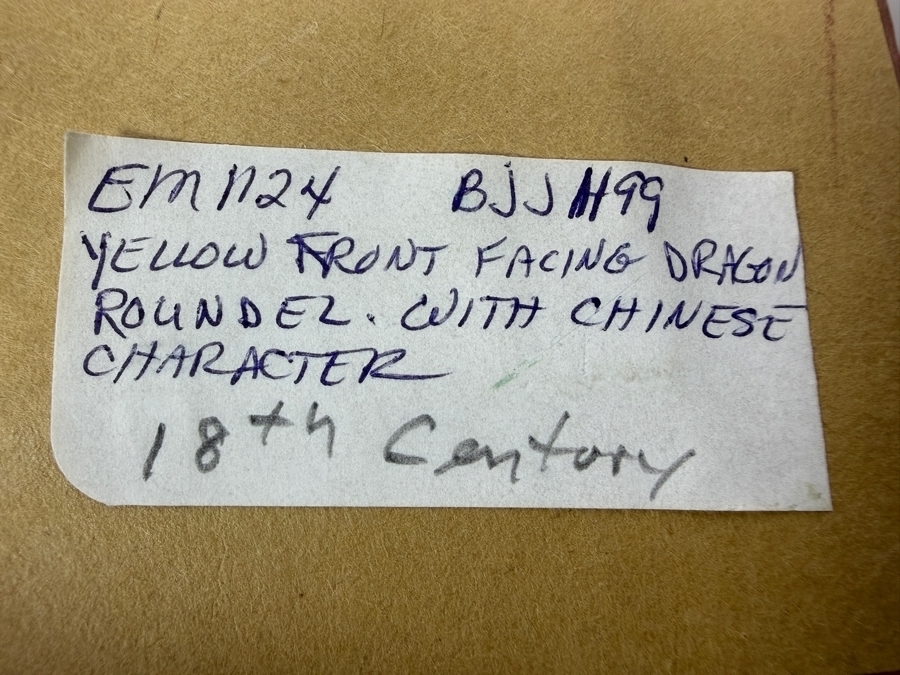 EM1124 BJJH99
YELLOW FRONT FACING DRAGON
ROUNDEL. WITH CHINESE
CHARACTER
18th Century